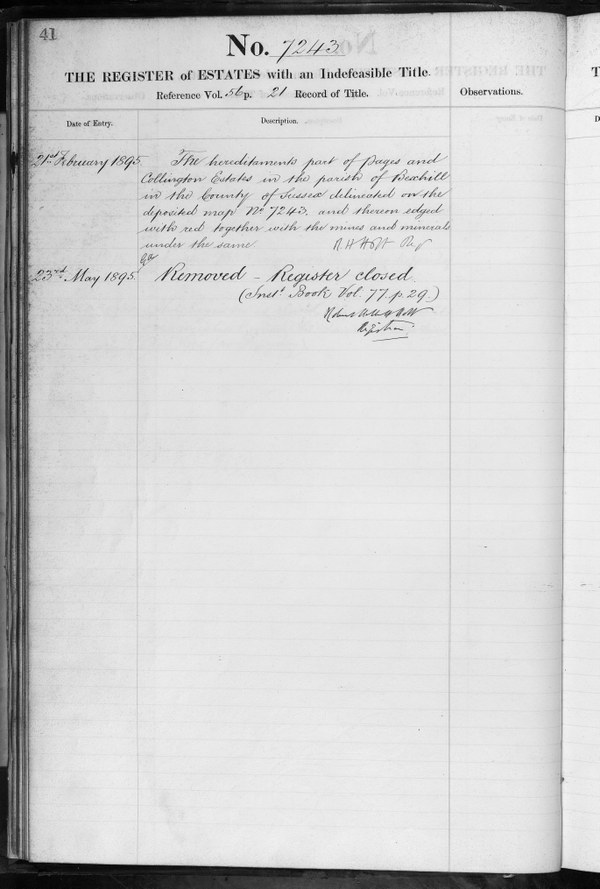 41
No. 7243
THE REGISTER of ESTATES with an Indefeasible Title.
Reference Vol. 56 p. 21 Record of Title.
Observations.
Date of Entry.
Description.
21st February 1895
The hereditaments part of Pages and
Collington Estates in the parish of Bexhill
in the County of Sussex delineated on the
deposited map No 7243. and thereon edged
with red together with the mines and minerals
under the same R H Holt Reg
23rd May 1895.
Removed – Register closed
(Inst. Book Vol. 77. p. 29.)
Robert Holt
Registrar